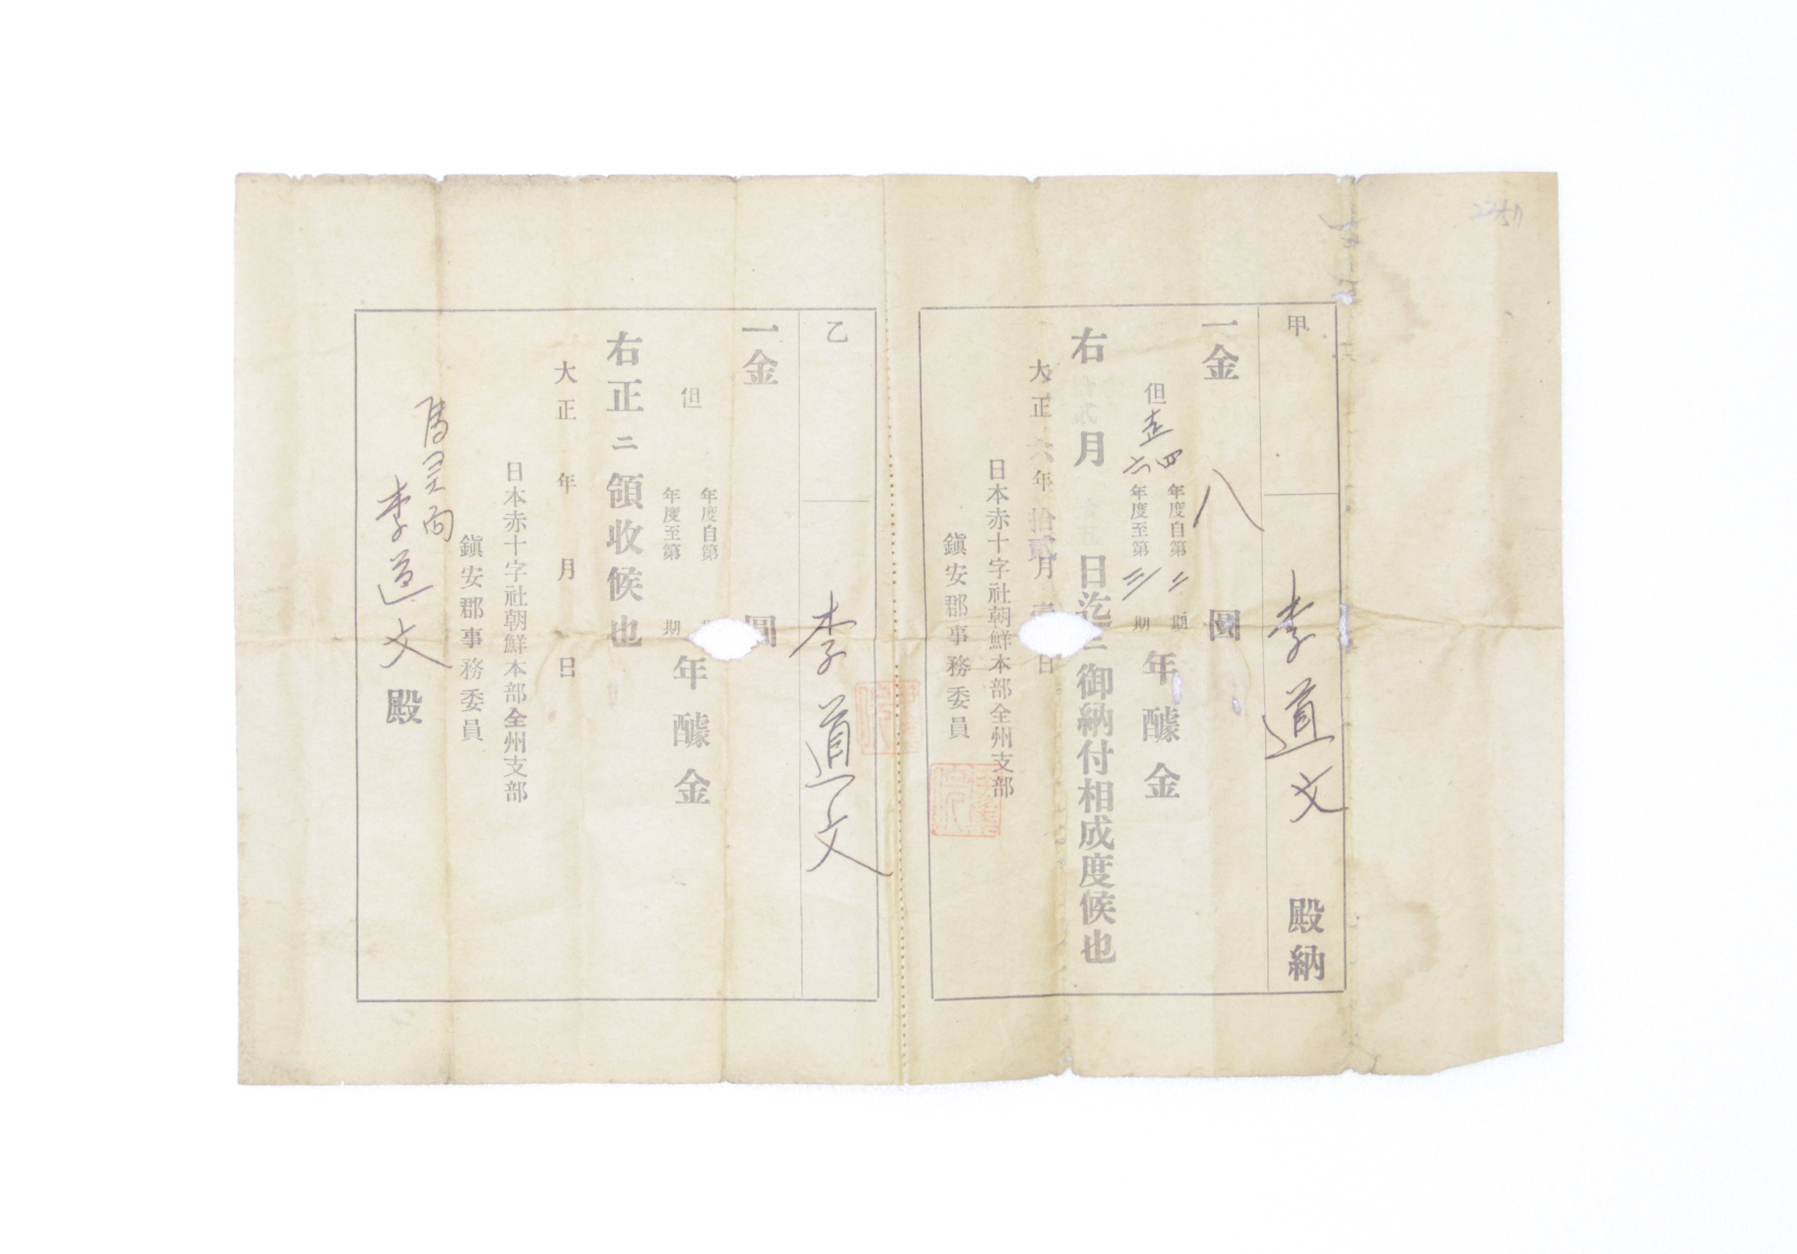 甲
李道文 殿納
一金 八 圓
但 大正四年度自第二期
六年度至第三期
年醵金
右 月 日迄ニ御納付相成度候也
大正六年拾貳月壹日
日本赤十字社朝鮮本部全州支部
鎭安郡事務委員
乙
李道文
一金 圓
但 年度自第
年度至第 期
年醵金
右正ニ領收候也
大正 年 月 日
日本赤十字社朝鮮本部全州支部
鎭安郡事務委員
李道文 殿